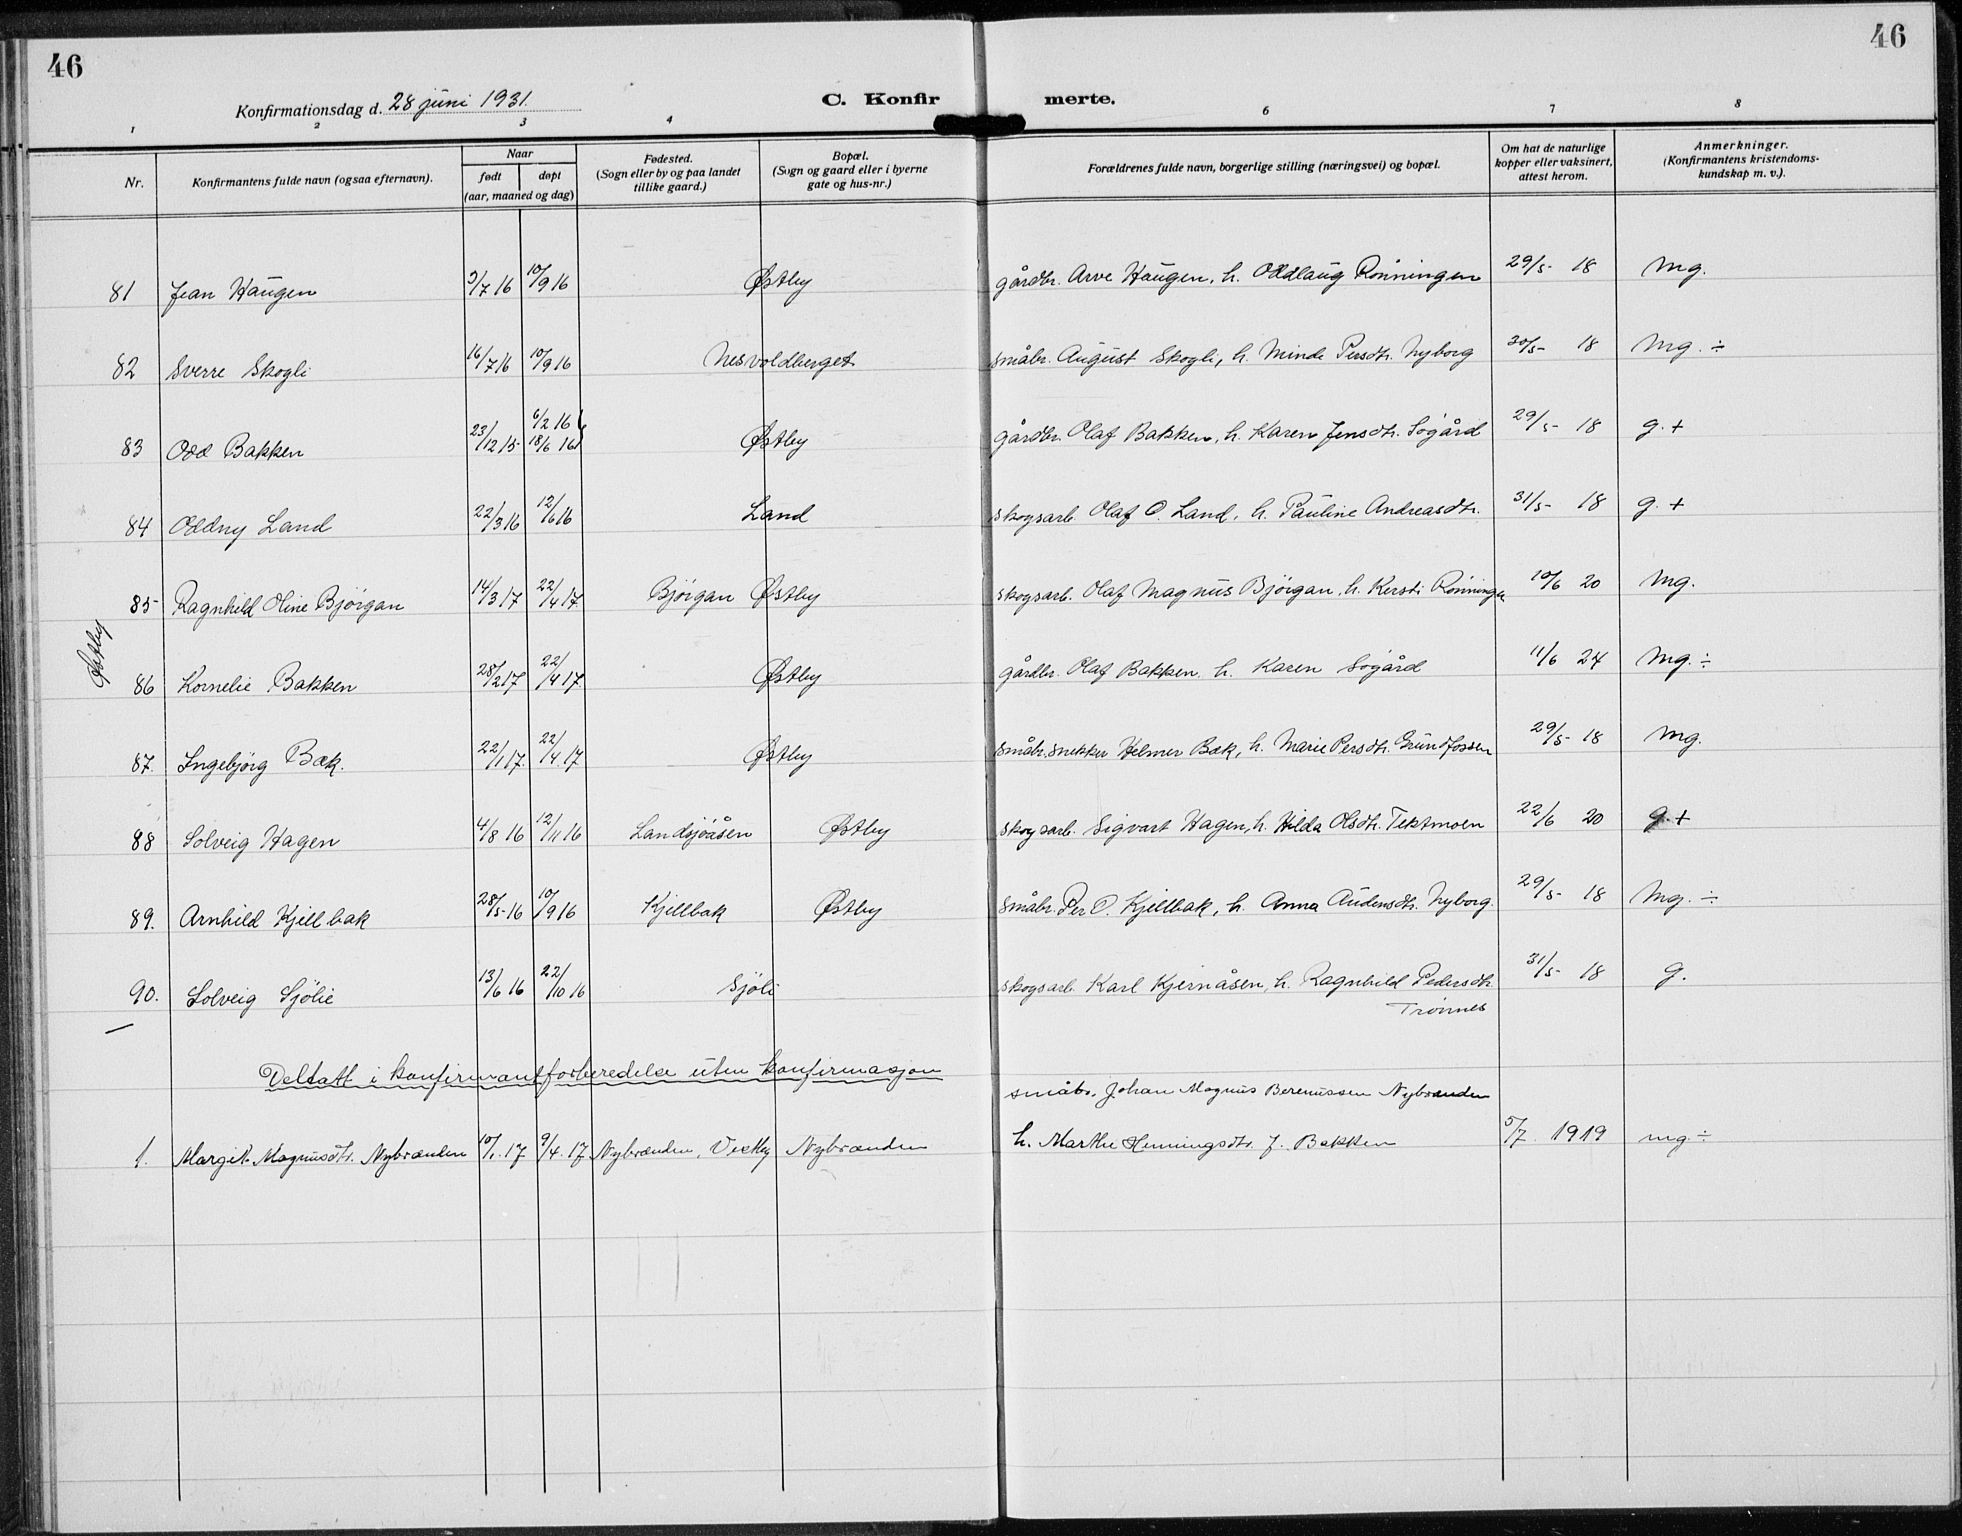 46
46
Konfirmationsdag d. 28 juni 1931.
C. Konfirmerte.
1 2 3 4 6 7 8
Nr.
Konfirmantens fulde navn (ogsaa efternavn).
Naar
født
døpt
(aar, maaned og dag)
Fødested.
(Sogn eller by og paa landet
tillike gaard.)
Bopæl.
(Sogn og gaard eller i byerne
gate og hus-nr.)
Forældrenes fulde navn, borgerlige stilling (næringsvei) og bopæl.
Om hat de naturlige
kopper eller vaksinert,
attest herom.
Anmerkninger.
(Konfirmantens kristendoms-
kundskap m. v.).
81 Jean Haugen 3/7 16 10/9 16 Østby gårdbr. Arve Haugen, h. Oddlaug Rönningen 29/5 18 Mg.
82 Sverre Skogli 16/7 16 10/9 16 Nesvoldberget småbr. August Skogli, h. Minda Persdtr. Nyborg 30/5 18 Mg. ÷
83 Odd Bakken 23/12 15 6/2 16 18/6 16 Østby gårdbr. Olaf Bakken, h. Karen Jensdtr. Sögård 29/5 18 g. +
84 Oddny Land 22/3 16 12/6 16 Land skogsarb. Olaf O. Land, h. Pauline Andreasdtr. 31/5 18 g. +
85 Ragnhild Oline Bjørgan 14/3 17 22/4 17 Bjørgan Østby skogsarb. Olaf Magnus Bjørgan, h. Kersti Rönningen 10/6 20 Mg.
Østby
86 Kornelie Bakken 28/2 17 22/4 17 Østby gårdbr. Olaf Bakken h. Karen Sögård 11/6 24 Mg. ÷
87. Ingebjørg Bæk. 22/1 17 22/4 17 Østby småbr. snekker Helmer Bæk, h. Marie Persdtr. Grundfossen 29/5 18 Mg.
88 Solveig Hagen 4/8 16 12/11 16 Landsjøåsen Østby skogsarb. Sigvart Hagen, h. Hilda Olsdtr. Tektmoen 22/6 20 g. +
89. Arnhild Kjellbak 28/5 16 10/9 16 Kjellbak Østby småbr. Per O. Kjellbak, h. Anna Audensdtr. Nyborg. 29/5 18 Mg. ÷
90. Solveig Sjölie 13/6 16 22/10 16 Sjöli skogsarb. Karl Kjernåsen, h. Ragnhild Pedersdtr.
Trønnes 31/5 18 g.
Deltatt i konfirmantforberedelse uten konfirmasjon
småbr. Johan Magnus Berenussen Nybrænden
1. Margit Magnusdtr. Nybrænden 10/1 17 9/4 17 Nybrænden, Vestby Nybrænden h. Marthe Henningsdtr. f. Bakken 5/7 1919 mg ÷